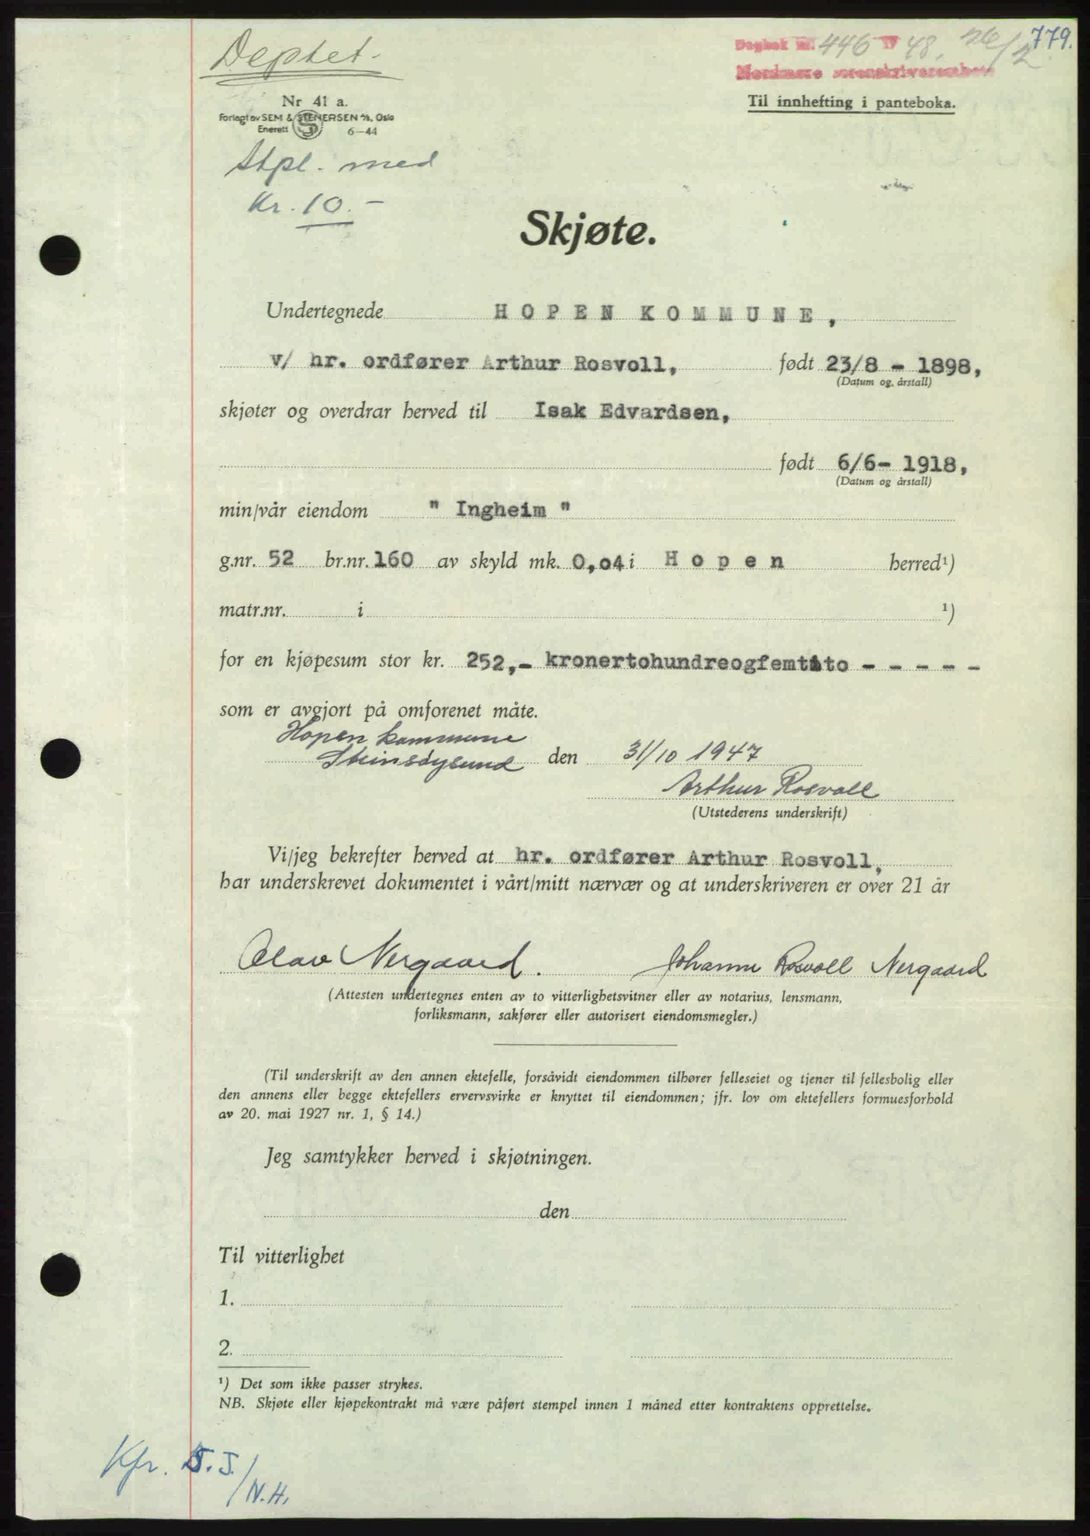 Deptet.
Dagbok nr. 446 19 48. 26/2 779.
Nordmøre sorenskriverembete
Nr 41 a.
Til innhefting i panteboka.
Forlagt av SEM & STENERSEN A/S, Oslo
Enerett 6-44
Stpl. med
Kr. 10.-
Skjøte.
Undertegnede HOPEN KOMMUNE,
v/ hr. ordfører Arthur Rosvoll, født 23/8 - 1898,
(Datum og årstall)
skjøter og overdrar herved til Isak Edvardsen,
født 6/6- 1918,
(Datum og årstall)
min/vår eiendom " Ingheim "
g.nr. 52 br.nr. 160 av skyld mk. 0,04 i Hopen herred¹)
matr.nr. i ¹)
for en kjøpesum stor kr. 252,- kronertohundreogfemtito - - - - -
som er avgjort på omforenet måte.
Hopen kommune
Steinsøysund den 31/10 1947
Arthur Rosvoll
(Utstederens underskrift)
Vi/jeg bekrefter herved at hr. ordfører Arthur Rosvoll,
har underskrevet dokumentet i vårt/mitt nærvær og at underskriveren er over 21 år
Olav Nergaard. Johanne Rosvoll Nergaard
(Attesten undertegnes enten av to vitterlighetsvitner eller av notarius, lensmann,
forliksmann, sakfører eller autorisert eiendomsmegler.)
(Til underskrift av den annen ektefelle, forsåvidt eiendommen tilhører felleseiet og tjener til fellesbolig eller
den annens eller begge ektefellers ervervsvirke er knyttet til eiendommen; jfr. lov om ektefellers formuesforhold
av 20. mai 1927 nr. 1, § 14.)
Jeg samtykker herved i skjøtningen.
den
Til vitterlighet
1.
2.
¹) Det som ikke passer strykes.
NB. Skjøte eller kjøpekontrakt må være påført stempel innen 1 måned etter kontraktens opprettelse.
Kfr. S.J./N.H.